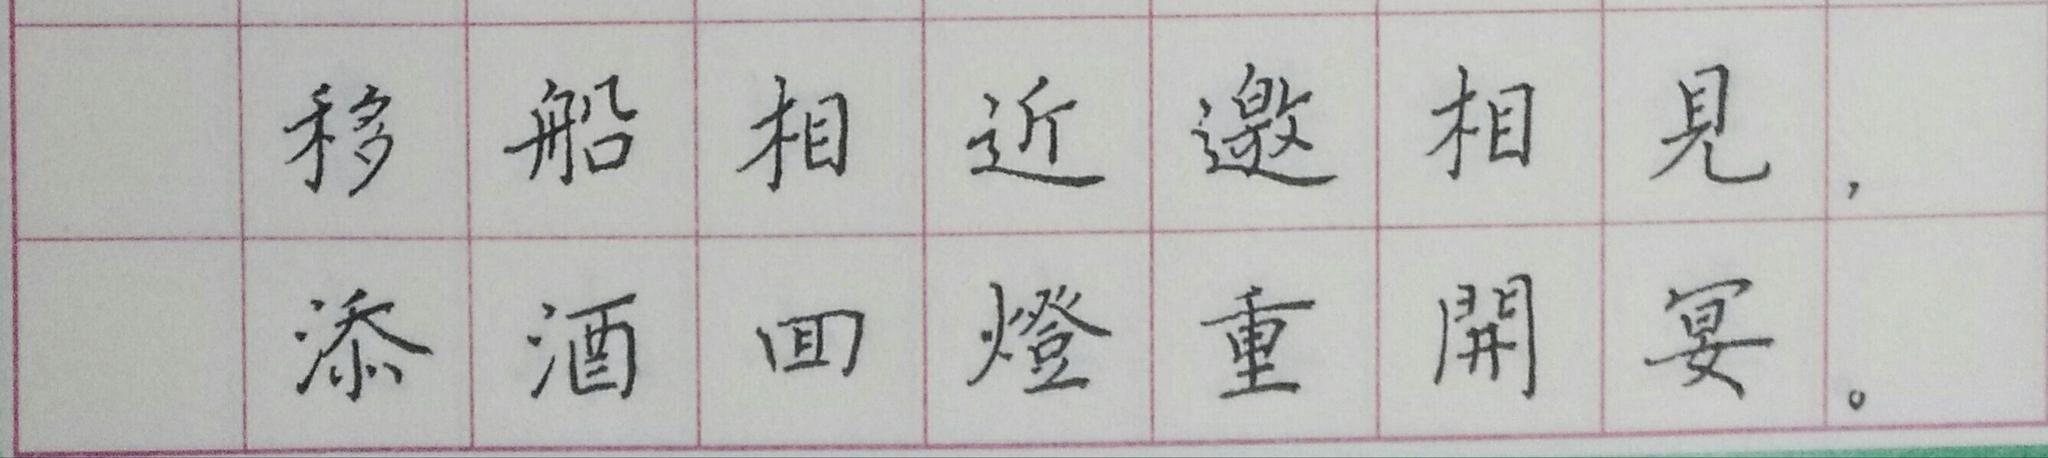 移船相近邀相見，
添酒回燈重開宴。